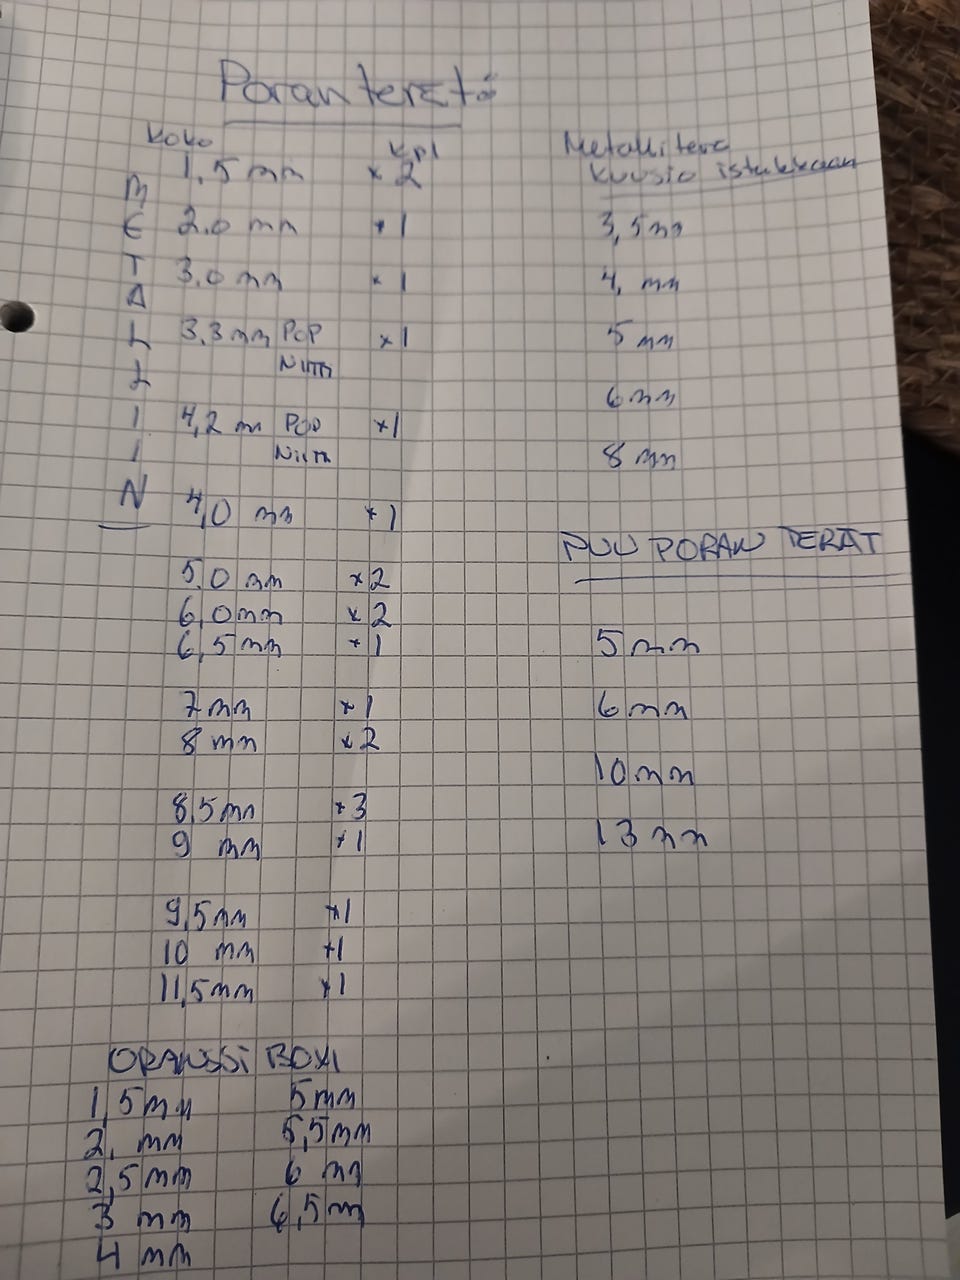 Poranterät
Koko Kpl
METALLIIN
1,5 mm x 2
2.0 mm x 1
3.0 mm x 1
3.3 mm POP x 1
Niitti
4,2 m POP x 1
Niitti
4,0 mm x 1
5.0 mm x 2
6,0 mm x 2
6,5 mm x 1
7 mm x 1
8 mm x 2
8,5 mm x 3
9 mm x 1
9,5 mm x 1
10 mm x 1
11,5 mm x 1
Metalliterä
kuusio istukkaan
3,5 mm
4, mm
5 mm
6 mm
8 mm
PUU PORAN TERÄT
5 mm
6 mm
10 mm
13 mm
ORANSSI BOXI
1,5 mm 5 mm
2, mm 5,5 mm
2,5 mm 6 mm
3 mm 6,5 m
4 mm